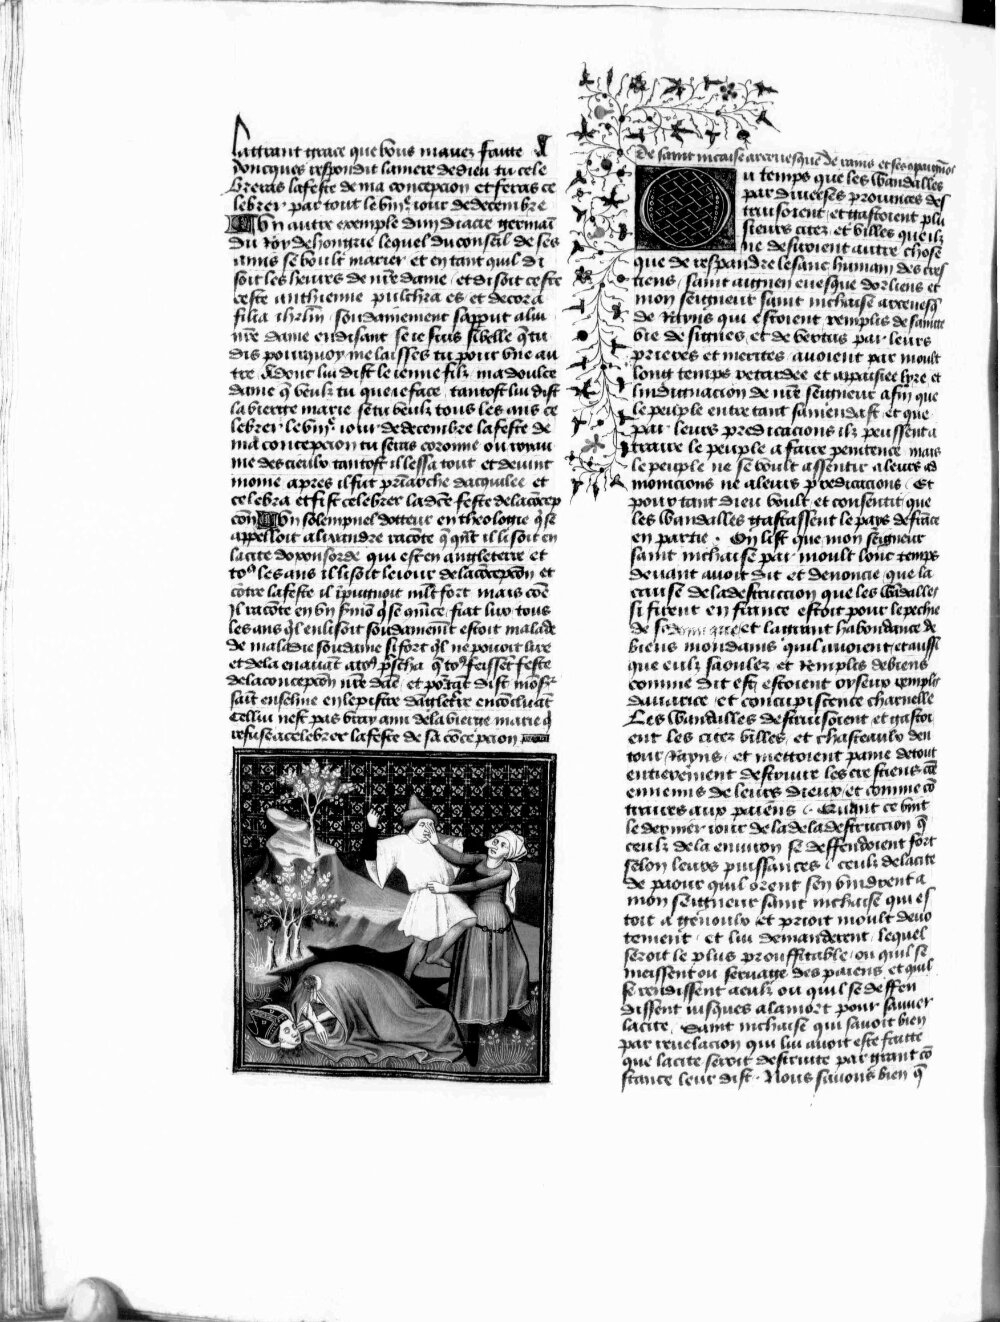 la grant grace que vous mavez faitte A
doncques respondit la mere de dieu tu cele
breras la feste de ma concepcion et feras ce
lebrer par tout le viije iour de decembre
Un autre exemple dun diacre germain
du roy de hongrie lequel du conseil de ses
amis se voult marier et en tant quil di
soit les heures de nre dame et disoit ceste
ceste anthienne pulchra es et decora
filia ihrlm soudainement sapput a lui
nre dame en disant se ie suis si belle q̃ tu
dis pourquoy me laisses tu pour une au
tre Adonc lui dist le ienne filz ma doulce
dame q̃ veulz tu que ie face tantost lui dist
la vierge marie se tu veulz tous les ans ce
lebrer le viije iour de decembre la feste de
ma concepcion tu seras coronne ou royau
me des cieulx tantost il lessa tout et devint
moine apres il fut priarche dacquilee et
celebra et fist celebrer la dce feste de la cõcep
cõn Un solempnel docteur en theologie q̃ se
appelloit alixandre racõte q̃ qnt il lisoit en
la cite doxonforde qui est en angleterre et
tos les ans il lisoit le iour de la cõcepcõn et
cõtre la feste il ipugnoit mlt fort mais cõe
il racõte en vn smõ q̃ se cmẽce fiat lux tous
les ans ql en lisoit soudainemt estoit malade
de maladie soudaine si fort ql ne povoit lire
et de la en avãt a tos pscha q̃ tos feissẽt feste
de la concepcõn nre dãe et portãt dist mõsr
sait enselme en lepistre dãgletre encõcluãt
Cellui nest pas vray ami de la vierge marie q̃
refuse a celebrer la feste de sa cõcepcion
De saint nicaise arcevesque de rains et ses cõpaignos
Ou temps que les wandalles
par diverses provinces des
truisoient et gastoient plu
sieurs citez et villes que ilz
ne desiroient autre chose
que de respandre le sanc humain des cres
tiens saint aignen evesque dorliens et
mon seigneur saint nichaise arcevesq̃
de Rayns qui estoient remplis de saincte
vie de signes et de vertus par leurs
prieres et merites avoient par moult
long temps retardee et appaisiee lyre et
lindignacion de nre seigneur afin que
le peuple entre tant samendast et que
par leurs predicacions ilz peussent a
traire le peuple a faire penitence mais
le peuple ne se voult assentir a leurs ad
monicions ne a leurs predicacions Et
pour tant dieu voult et consentit que
les wandalles gastassent le pays de frãce
en partie . On list que mon seigneur
saint nichaise par moult lonc temps
devant avoit dit et denoncie que la
cause de la destruccion que les wãdalles
si firent en france estoit pour le pechie
de et la grant habondance de
biens mondains quil avoient et aussi
que eulz saoulez et remplis de biens
comme dit est estoient oyseux remplis
davarice et concupiscence charnelle
Les wandalles destruisoient et gastoi
ent les citez villes et chasteaulx den
tour Rayns et mettoient paine de tout
entierement destruire les crestiens cõe
ennemis de leurs dieux et comme cõ
traires aux paiens . Quant ce vint
le dernier iour de la de la destruccion q̃
ceulz de la environ se deffendoient fort
selon leurs puissances ceulz de la cite
de paour quil orent sen vindrent a
mon seigneur saint nichaise qui es
toit a genoulx et prioit moult devo
tement et lui demanderent lequel
seroit le plus prouffitable ou quil se
meissent ou servage des paiens et quil
se rendissent a eulz ou quil se deffen
dissent iusques a la mort pour sauver
la cite Saint nichaise qui savoit bien
par revelacion qui lui avoit este faitte
que la cite seroit destruite par grant cõ
stance leur dist . Nous savons bien q̃